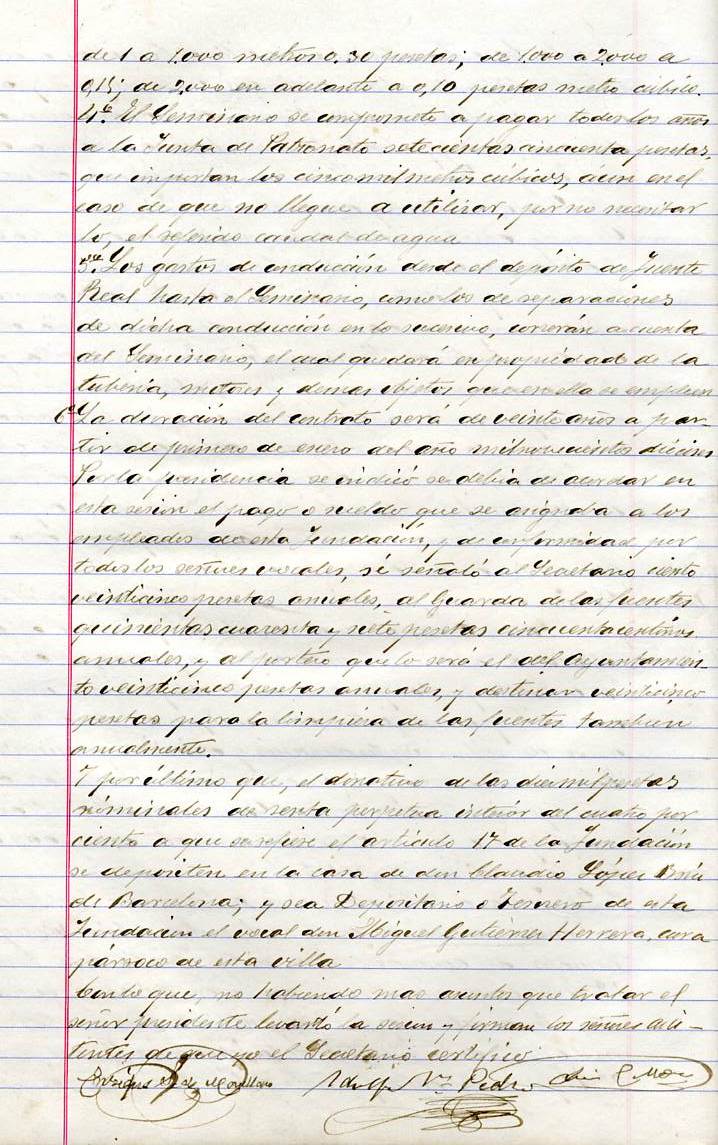 de 1 a 1.000 metros 0.30 pesetas; de 1.000 a 2.000 a
0,15; de 2.000 en adelante a 0,10 pesetas metro cúbico.
4ª. El Seminario se compromete a pagar todos los años
a la Junta de Patronato setecientas cincuenta pesetas,
que importan los cinco mil metros cúbicos, aun en el
caso de que no llegue a utilizar, por no necesitar
lo, el referido caudal de agua
5ª. Los gastos de conducción desde el depósito de Fuente
Real hasta el Seminario, como los de reparaciones
de dicha conducción en lo sucesivo, correrán a cuenta
del Seminario, el cual quedará en propiedad de la
tubería, motores y demas objetos que en ella se empleen
6ª La duración del contrato será de veinte años a par-
tir de primero de enero del año mil novecientos dieciseis
Por la presidencia se indicó se debia de acordar en
esta sesión el pago o sueldo que se asignaba a los
empleados de esta Fundación, y de conformidad por
todos los señores vocales, sé señaló al Secretario ciento
veinticinco pesetas anuales, al Guarda de las fuentes
quinientas cuarenta y siete pesetas cincuenta centimos
anuales, y al portero que lo será el del Ayuntamien-
to veinticinco pesetas anuales, y destinar veinticinco
pesetas para la limpieza de las fuentes tambien
anualmente.
Y por último que, el donativo de las diez mil pesetas
nominales de renta perpetua interior del cuatro por
ciento a que se refiere el artículo 17 de la Fundación
se depositen en la casa de don Claudio López Brú
de Barcelona; y sea Depositario o Tesorero de esta
Fundacion el vocal don Miguel Gutiérrez Herrera, cura
párroco de esta villa
Con lo que, no habiendo mas asuntos que tratar el
señor presidente levantó la sesion y firman los señores asis-
tentes de que yo el Secretario certifico.
Enrique de Adolfo Pedro